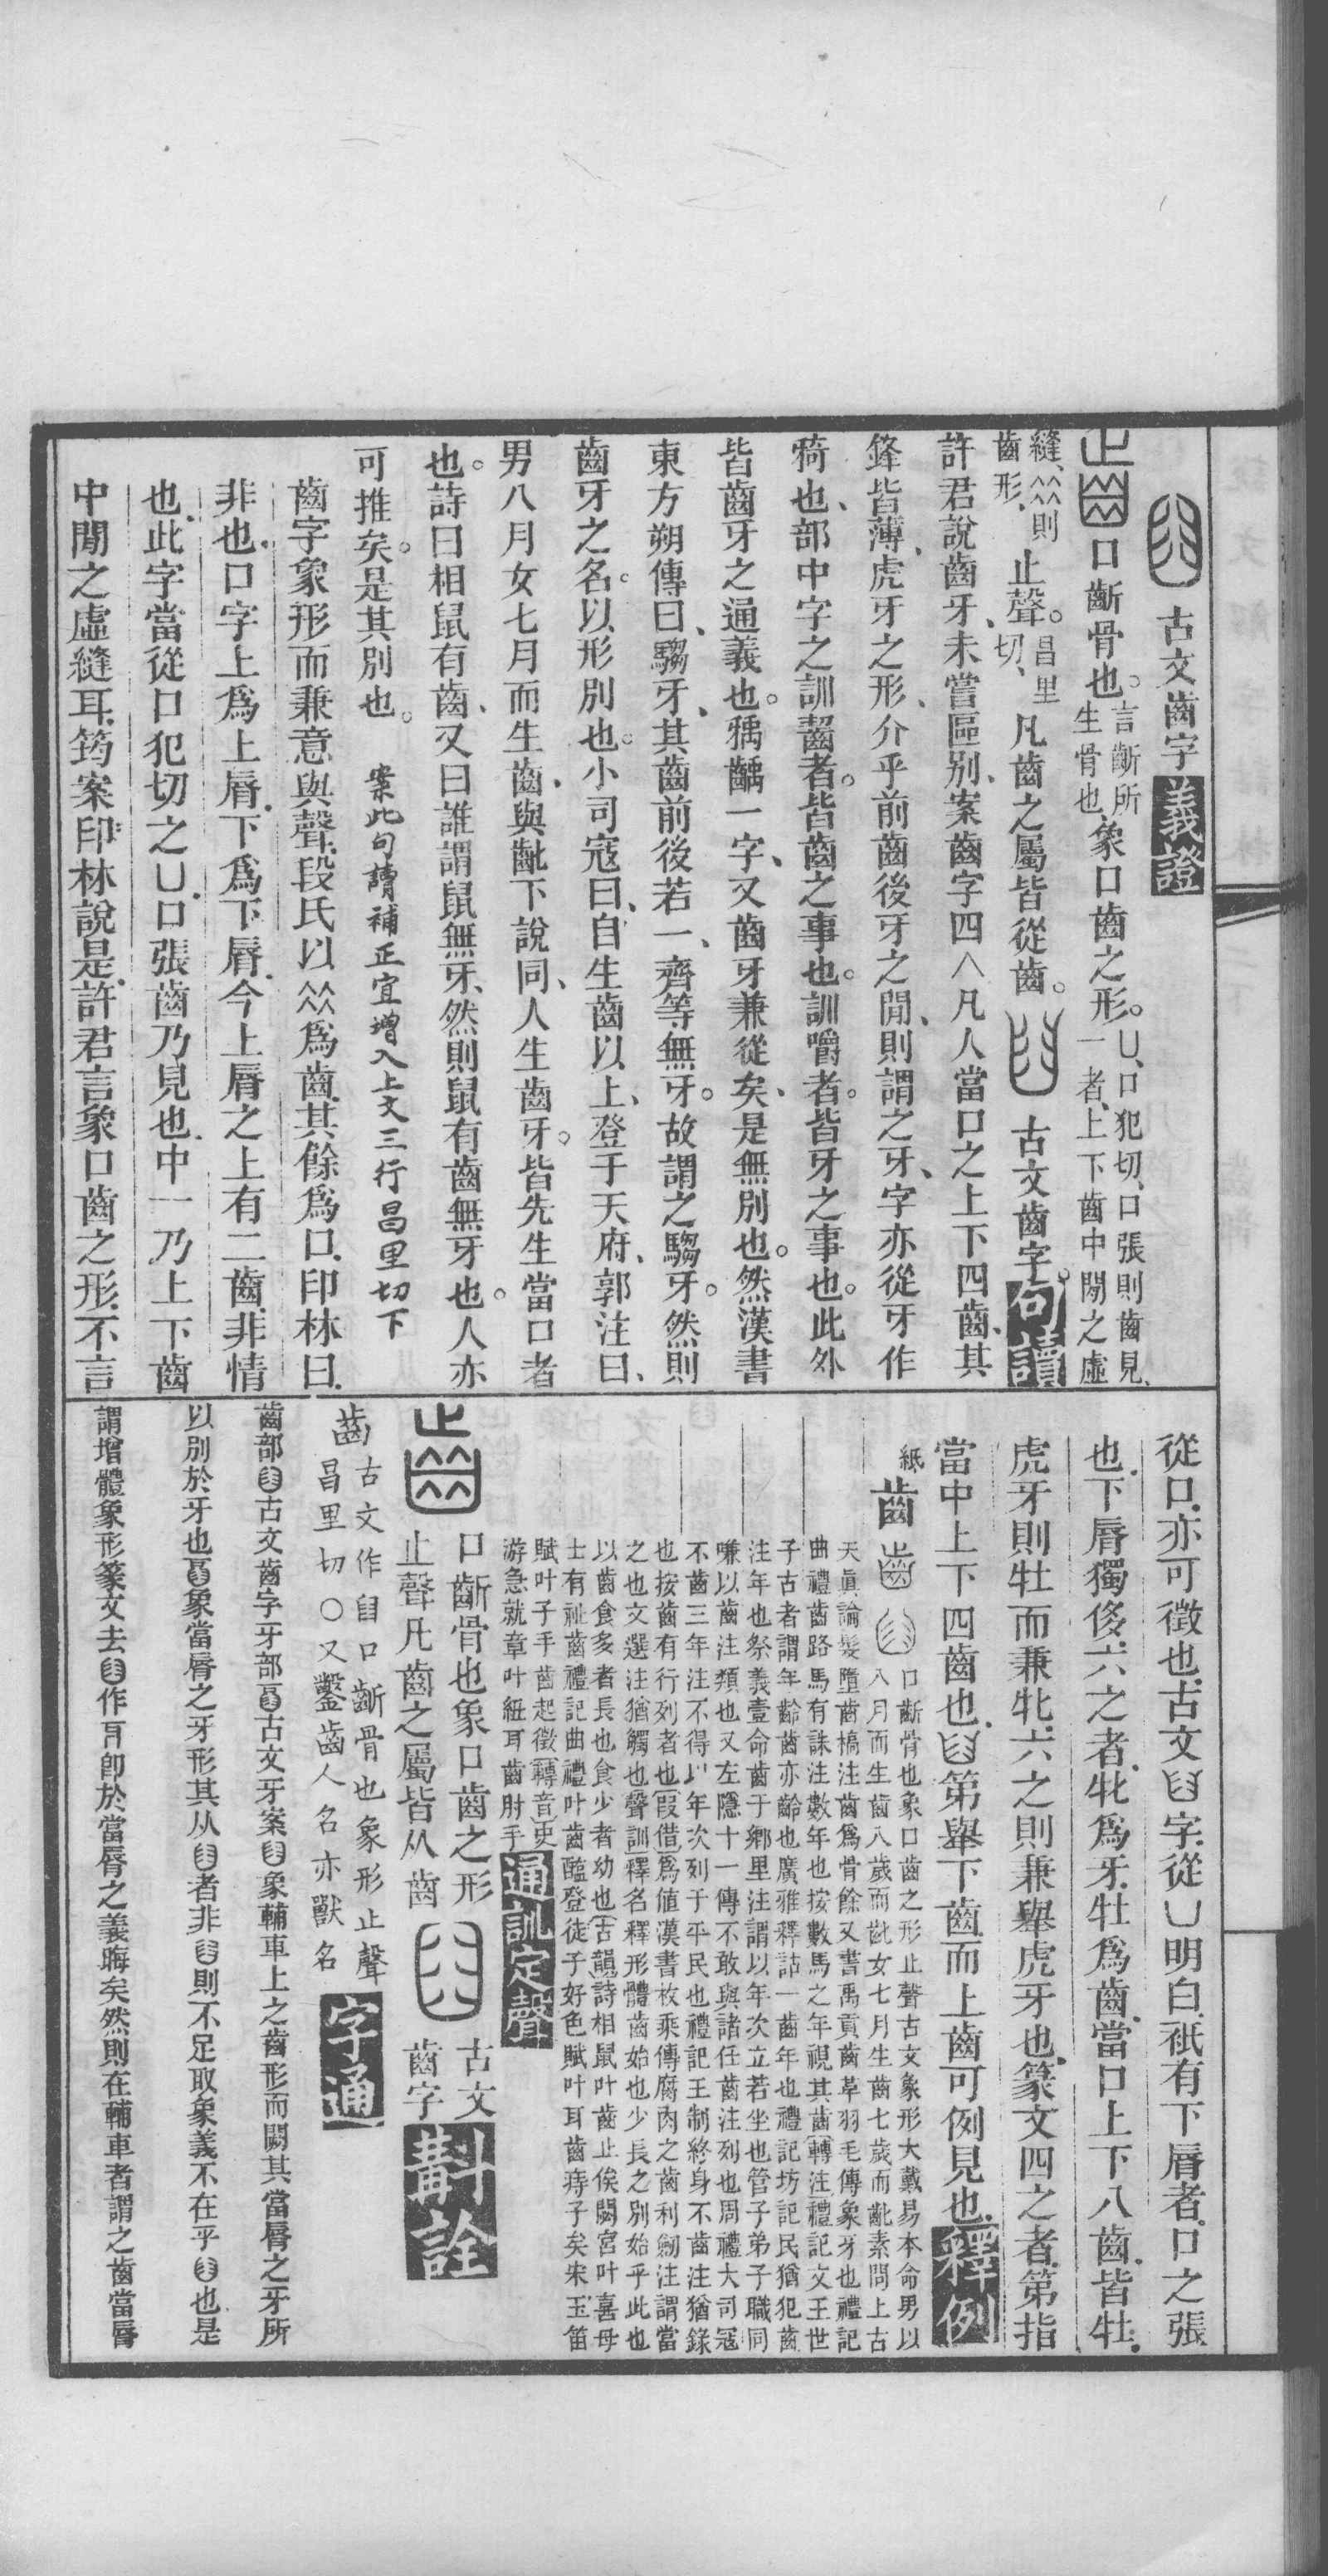 古文齒字義證
口齗骨也。言齗所生骨也、象口齒之形。凵、口犯切、口張則齒見、一者、上下齒中閒之虛
縫、𠈌則齒形、止聲。昌里切、凡齒之屬皆從齒。古文齒字。句讀
許君說齒牙、未嘗區別、案齒字四人、凡人當口之上下四齒、其
鋒皆薄、虎牙之形、介乎前齒後牙之閒、則謂之牙、字亦從牙作
㸦也、部中字之訓齧者。皆齒之事也。訓嚼者。皆牙之事也。此外
皆齒牙之通義也。㺄齲一字、又齒牙兼從、矣、是無別也。然漢書
東方朔傳曰、騶牙、其齒前後若一、齊等無牙。故謂之騶牙。然則
齒牙之名。以形別也。小司寇曰、自生齒以上、登于天府、郭注曰、
男八月女七月而生齒、與齔下說同、人生齒牙。皆先生當口者
也。詩曰相鼠有齒、又曰誰謂鼠無牙、然則鼠有齒無牙也。人亦
可推矣。是其別也。案此句讀補正宜增入上文三行昌里切下
齒字象形而兼意與聲、段氏以𠈌爲齒、其餘爲口、印林曰、
非也、口字上爲上脣、下爲下脣、今上脣之上有二齒、非情
也、此字當從口犯切之凵、口張齒乃見也、中一乃上下齒
中閒之虛縫耳、筠案、印林說是、許君言象口齒之形、不言
從口、亦可徵也、古文字、從凵明白、祇有下脣者、口之張
也、下脣獨侈、六之者、牝爲牙、牡爲齒、當口上下八齒、皆牡、
虎牙則牡而兼牝、六之則兼舉虎牙也、篆文四之者、第指
當中上下四齒也、第舉下齒、而上齒可例見也、釋例
紙 齒 口齗骨也象口齒之形止聲古文象形大戴易本命男以
八月而生齒八歲而齔女七月生齒七歲而齔素問上古
天眞論髮墮齒槁注齒爲骨餘又書禹貢齒革羽毛傳象牙也禮記
曲禮齒路馬有誅注數年也按數馬之年視其齒轉注禮記文王世
子古者謂年齡齒亦齡也廣雅釋詁一齒年也禮記坊記民猶犯齒
注年也祭義壹命齒于鄉里注謂以年次立若坐也管子弟子職同
嗛以齒注類也又左隱十一傳不敢與諸任齒注列也周禮大司寇
不齒三年注不得以年次列于平民也禮記王制終身不齒注猶錄
也按齒有行列者也叚借爲値漢書枚乘傳腐肉之齒利劒注謂當
之也文選注猶觸也聲訓釋名釋形體齒始也少長之別始乎此也
以齒食多者長也食少者幼也古韻詩相鼠叶齒止俟閟宮叶喜母
士有祉齒禮記曲禮叶齒醢登徒子好色賦叶耳齒痔子矣宋玉笛
賦叶子手齒起徵轉音史游急就章叶紐耳齒肘手通訓定聲
口齗骨也象口齒之形止聲凡齒之屬皆从齒 古文齒字斠詮
齒 古文作𦥒口齗骨也象形止聲昌里切○又鑿齒人名亦獸名 字通
齒部古文齒字牙部古文牙案象輔車上之齒形而闕其當脣之牙所
以別於牙也象當脣之牙形其从者非則不足取象義不在乎也是
謂增體象形篆文去作𠕁卽於當脣之義晦矣然則在輔車者謂之齒當脣